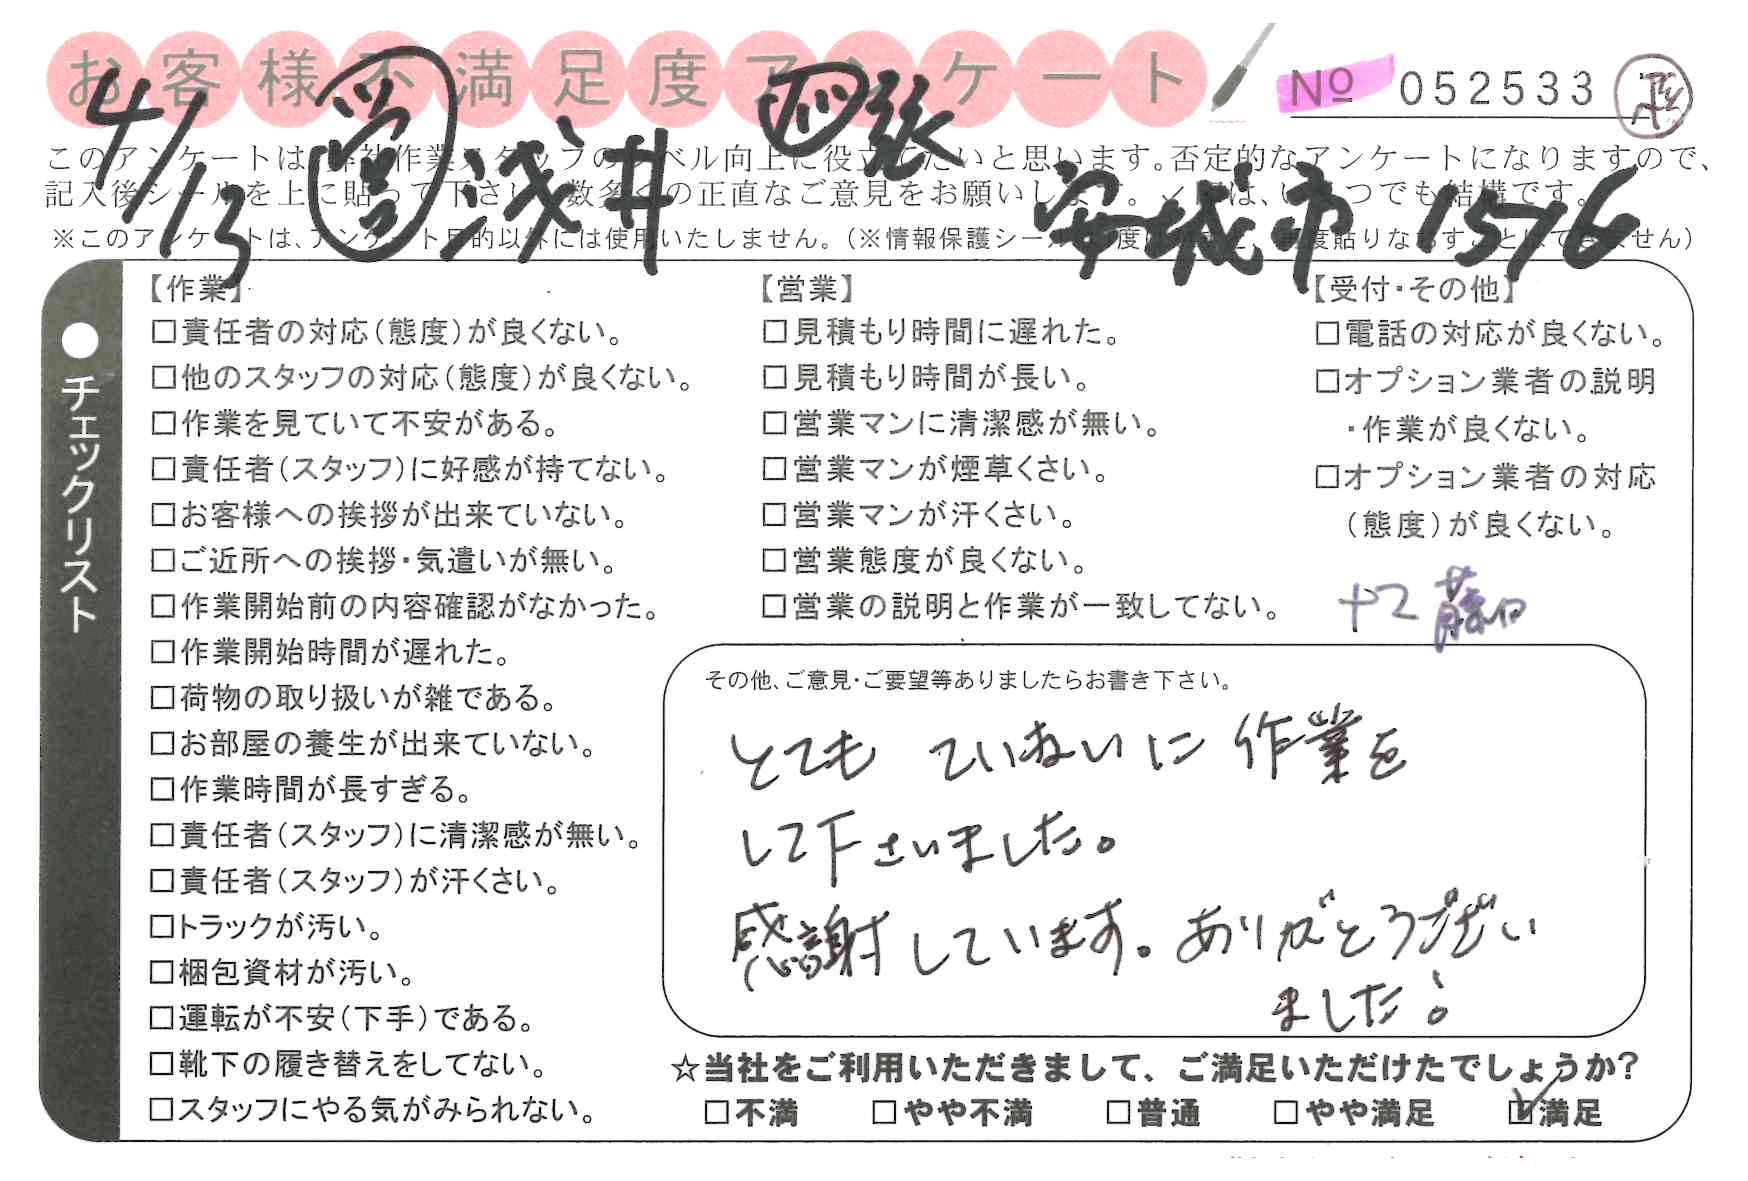 お客様不満足度アンケート
№ 052533
4/13 営 浅井 四張 安城市 1576
このアンケートは、弊社作業スタッフのレベル向上に役立てたいと思います。否定的なアンケートになりますので、
記入後シールを上に貼って下さい。数多くの正直なご意見をお願いします。✓印は、いくつでも結構です。
※このアンケートは、アンケート目的以外には使用いたしません。(※情報保護シールは1度はがすと、再度貼りなおすことはできません)
●チェックリスト
【作業】
□責任者の対応(態度)が良くない。
□他のスタッフの対応(態度)が良くない。
□作業を見ていて不安がある。
□責任者(スタッフ)に好感が持てない。
□お客様への挨拶が出来ていない。
□ご近所への挨拶・気遣いが無い。
□作業開始前の内容確認がなかった。
□作業開始時間が遅れた。
□荷物の取り扱いが雑である。
□お部屋の養生が出来ていない。
□作業時間が長すぎる。
□責任者(スタッフ)に清潔感が無い。
□責任者(スタッフ)が汗くさい。
□トラックが汚い。
□梱包資材が汚い。
□運転が不安(下手)である。
□靴下の履き替えをしてない。
□スタッフにやる気がみられない。
【営業】
□見積もり時間に遅れた。
□見積もり時間が長い。
□営業マンに清潔感が無い。
□営業マンが煙草くさい。
□営業マンが汗くさい。
□営業態度が良くない。
□営業の説明と作業が一致してない。
【受付・その他】
□電話の対応が良くない。
□オプション業者の説明
・作業が良くない。
□オプション業者の対応
(態度)が良くない。
その他、ご意見・ご要望等ありましたらお書き下さい。
とても ていねいに 作業を
して下さいました。
感謝しています。ありがとうござい
ました!
☆当社をご利用いただきまして、ご満足いただけたでしょうか?
□不満 □やや不満 □普通 □やや満足 ☑満足